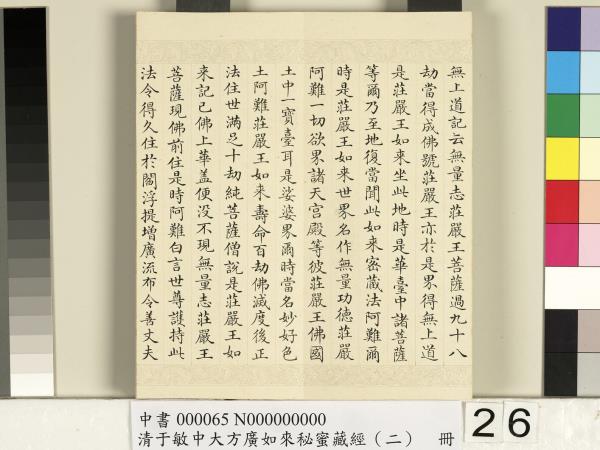 無上道記云無量志莊嚴王菩薩過九十八
劫當得成佛號莊嚴王亦於是界得無上道
是莊嚴王如來坐此地時是華臺中諸菩薩
等爾乃至地復當聞此如來密藏法阿難爾
時是莊嚴王如來世界名作無量功德莊嚴
阿難一切欲界諸天宮殿等彼莊嚴王佛國
土中一寶臺耳是娑婆界爾時當名妙好色
土阿難莊嚴王如來壽命百劫佛滅度後正
法住世滿足十劫純菩薩僧說是莊嚴王如
來記已佛上華盖便没不現無量志莊嚴王
菩薩現佛前住是時阿難白言世尊護持此
法令得久住於閻浮提增廣流布令善丈夫
中書 000065 N000000000
清于敏中大方廣如來秘蜜藏經（二） 冊
26